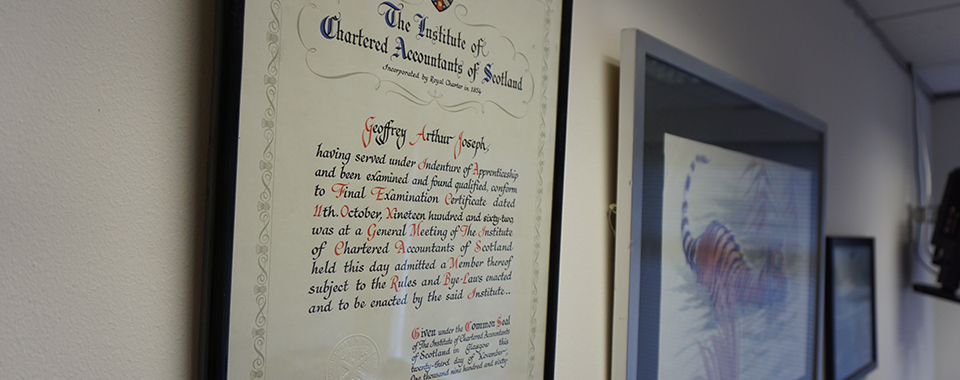 The Institute of
Chartered Accountants of Scotland
Incorporated by Royal Charter in 1854
Geoffrey Arthur Joseph,
having served under Indenture of Apprenticeship
and been examined and found qualified, conform
to Final Examination Certificate dated
11th. October, Nineteen hundred and sixty-two,
was at a General Meeting of The Institute
of Chartered Accountants of Scotland
held this day admitted a Member thereof
subject to the Rules and Bye-Laws enacted
and to be enacted by the said Institute...
Given under the Common Seal
of The Institute of Chartered Accountants
of Scotland in Glasgow this
twenty-third day of November,
One thousand nine hundred and sixty-